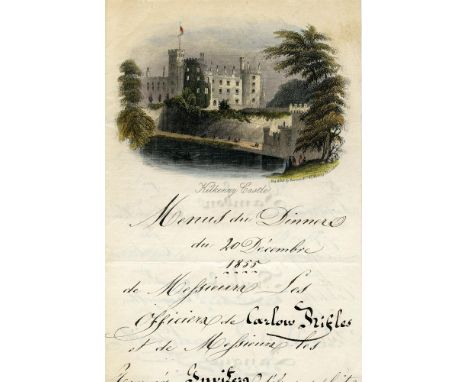 Kilkenny Castle
Menus du Dinner
du 20 Décembre
1855
de Messieurs Les
Officiers de Carlow Rifles
et de Messieurs les